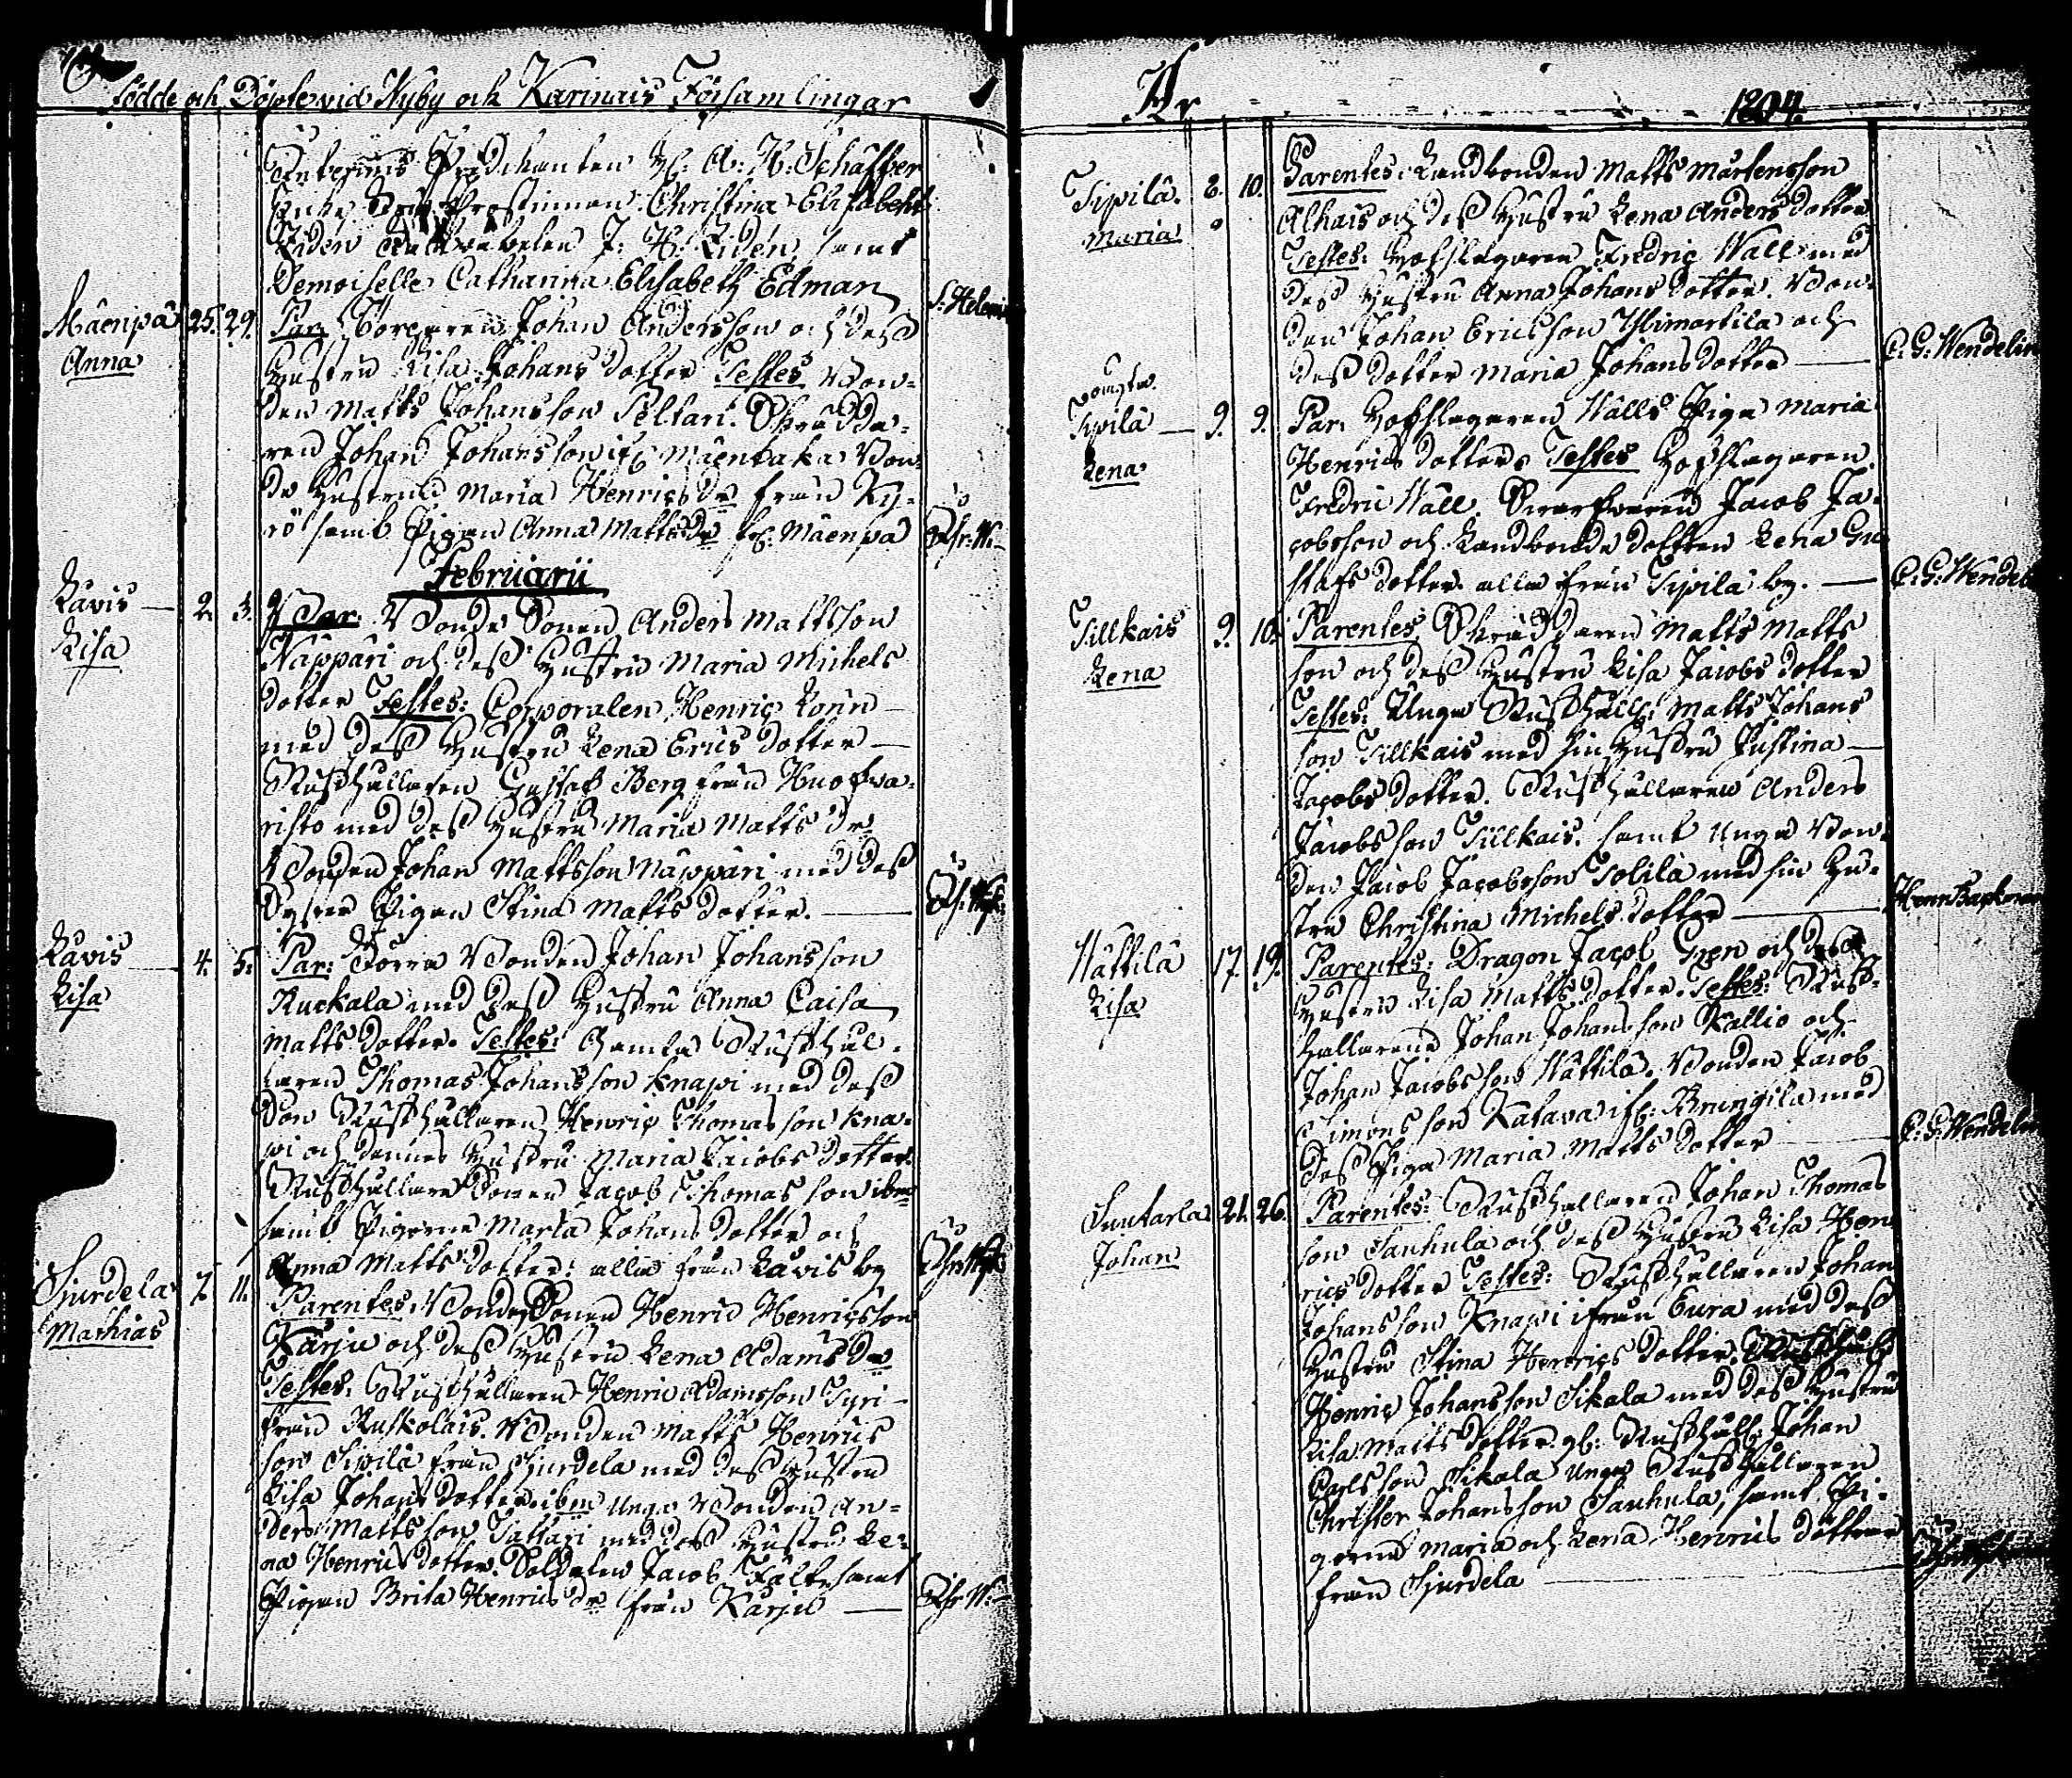 födde och Döpte vid Nyby och Karinais Församlingar
Interims Predikanten H. A: H: Schäffer
Prostinnan Christina Elisabeth
Lidén J: H: Lidén, samt
Demoiselle Catharina Elisabeth Edman
S: Helenii
Mäenpä 25. 29. Par: Torparen Johan Andersson och dess
Anna
Hustru Lisa Johans dotter Testes Bon-
den Matts Johansson Peltari. Skrädda-
ren Johan Johansson if: Mäentaka Bon-
de Hustrun Maria Henrics dr från Ky-
rö samt Pigan Anna Matts dr fr: Mäenpä
Februarii
Lavis — 2. 3. Par: Bonde Sonen Anders Mattsson
Lisa
Näppäri och dess Hustru Maria Michels
dotter Testes: Corporalen Henric Lönn
med dess Hustru Lena Erics dotter —
Rusthållaren Gustaf Berg från Huofwa-
risto med dess Hustru Maria Matts dr
Bonden Johan Mattsson Näppäri med dess
Syster Pigan Stina Matts dotter. —
Lavis — 4. 5. Par: Förra Bonden Johan Johansson
Lisa
Kuckala med dess Hustru Anna Caisa
Matts dotter. Testes: Gamla Rusthål-
laren Thomas Johansson Knapi med dess
Son Rusthållaren Henric Thomasson Kna-
pi och dennes Hustru Maria Jacobs dotter.
Rusthållare Sonen Jacob Thomasson ibm
samt Pigorna Maria Johans dotter och
Anna Matts dotter: alla från Lavis by
Sjurdela 7. 11. Parentes: Bonde Sonen Henric Henricsson
Mathias
Karju och dess Hustru Lena Adams dr
Testes: Rusthållaren Henric Adamsson Tyri
från Ruskolais. Bonden Matts Henrics
son Sipilä från Sjurdela med dess Hustru
Lisa Johans dotter ibm Unga Bonden An-
ders Mattsson Tattari med dess Hustru Le-
na Henrics dotter. Soldaten Jacob Fält samt
Pigan Brita Henrics dr från Karju —
År 1804.
Sipilä. 8. 10. Parentes: Landbonden Matts Mårtensson
Maria
Alhais och dess Hustru Lena Anders dotter
Testes: Hofslagaren Fredric Wall med
dess Hustru Anna Johans dotter. Bon-
den Johan Ericsson Ylimarkila och
dess dotter Maria Johans dotter —
C. G: Wendelin
Sipilä — 9. 9. Par: Hofslagaren Walls Piga Maria
Lena
Henrics dotter. Testes Hofslagaren
Fredric Wall. Jacob Ja-
cobsson och Landbonde dottren Lena Gu
stafs dotter. alla från Sipilä by. —
C. G: Wendel
Tillkais 9. 10. Parentes Skräddaren Matts Matts
Lena
son och dess Hustru Lisa Jacobs dotter
Testes: Unga Rusthåll: Matts Johans
son Tillkais med sin Hustru Justina —
Jacobs dotter. Rusthållaren Anders
Jacobsson Tillkais. samt Unga Bon-
den Jacob Jacobsson Tolila med sin Hu-
stru Christina Michels dotter —
Wättilä 17. 19. Parentes: Dragon Jacob Gren och dess
Lisa
Hustru Lisa Matts dotter. Testes: Rust-
hållarena Johan Johansson Kallio och
Johan Jacobsson Wättilä. Bonden Jacob
Simonsson Katava if: Brungila med
dess Piga Maria Matts dotter —
C: G: Wendelin
Suutarla 21. 26. Parentes: Rusthållaren Johan Thomas
Johan
son Sauhula och dess Hustru Lisa Hen
rics dotter Testes: Rusthållaren Johan
Johansson Knapi ifrån Eura med dess
Hustru Stina Henrics dotter.
Henric Johansson Sikala med dess Hustru
Lisa Matts dotter. gl: Rusthåll: Johan
Carlsson Sikala Unga Rusthållaren
Christer Johansson Sauhula, samt Pi-
gorna Maria och Lena Henrics döttrar
från Sjurdela —